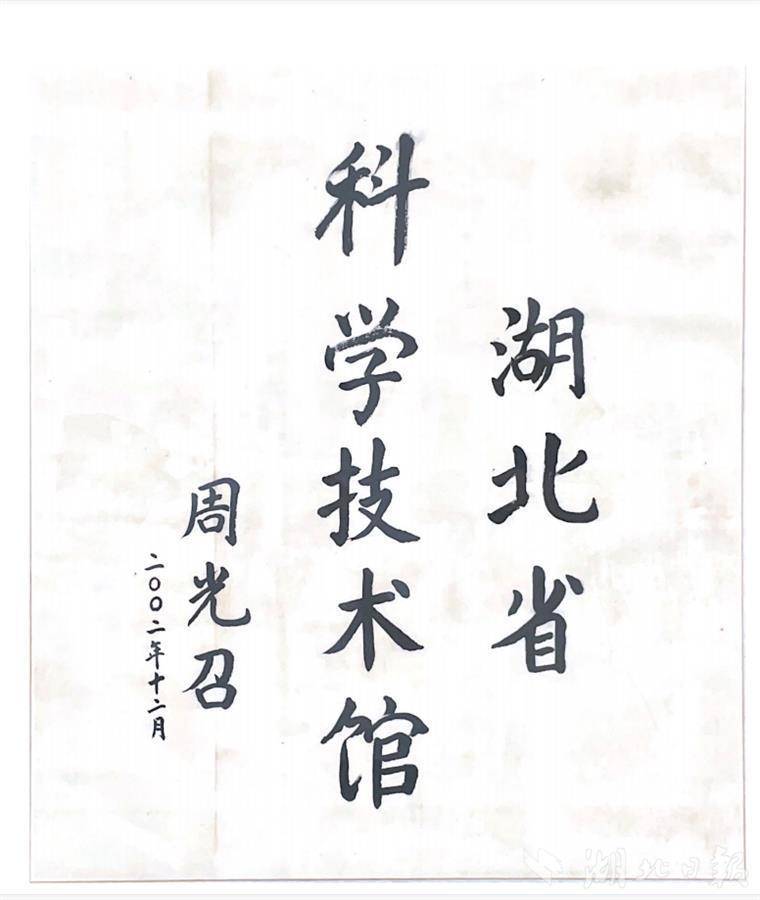 湖北省
科学技术馆
周光召
二〇〇二年十二月
湖北日报